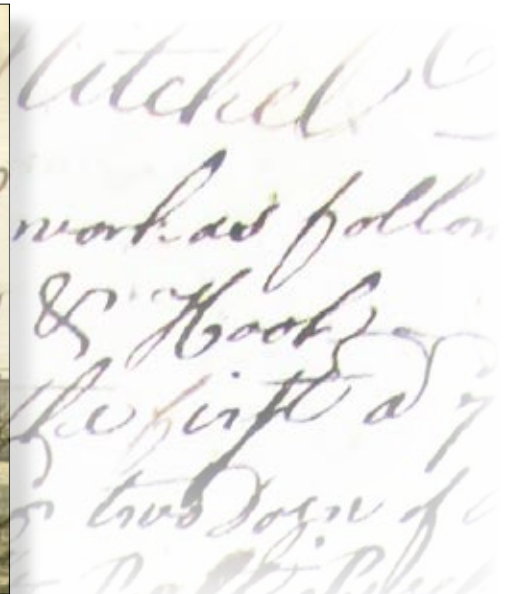 itchel
work as follow
& Hook
the first a
two Dozn of